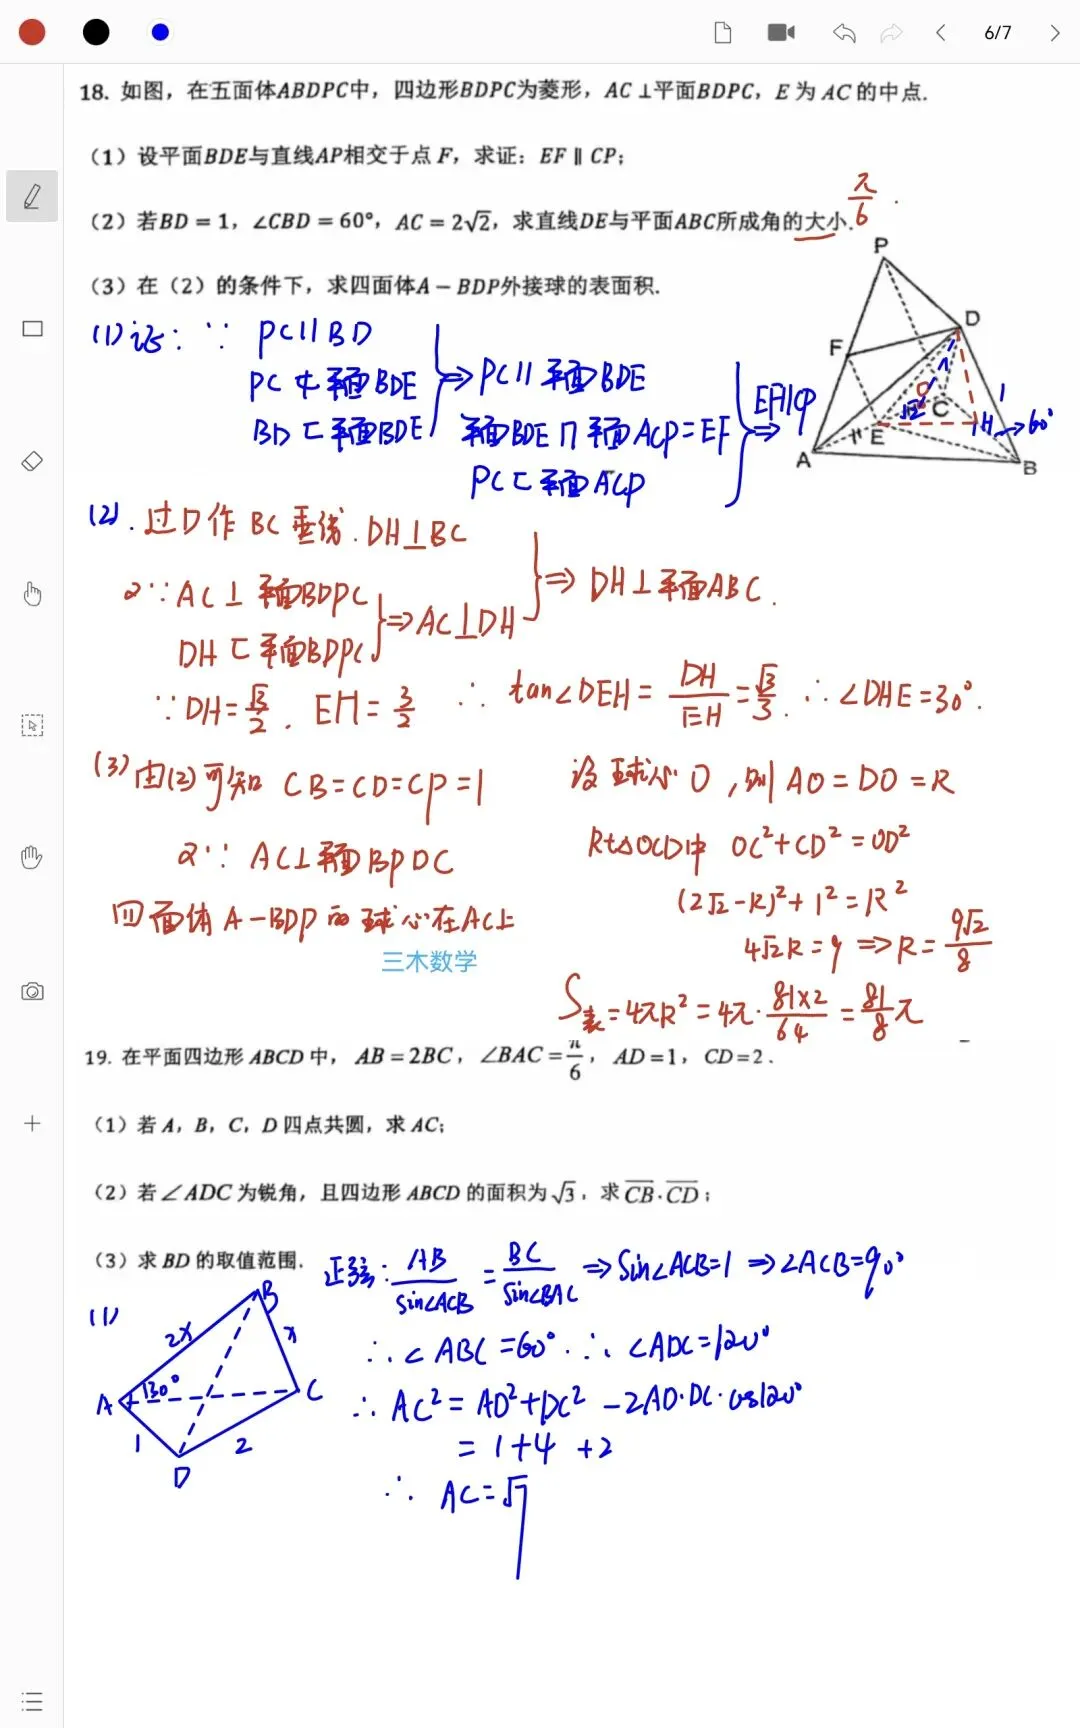 6/7
18. 如图，在五面体ABDPC中，四边形BDPC为菱形，AC⊥平面BDPC，E为AC的中点.
（1）设平面BDE与直线AP相交于点F，求证：EF∥CP；
（2）若BD=1，∠CBD=60°，AC=2√2，求直线DE与平面ABC所成角的大小. π/6
（3）在（2）的条件下，求四面体A-BDP外接球的表面积.
P
D
F
C
E
A
B
H
O
1
√2
60°
(1) 证：∵ PC∥BD
PC⊄平面BDE
BD⊂平面BDE
⇒ PC∥平面BDE
平面BDE∩平面ACP=EF
PC⊂平面ACP
⇒ EF∥CP
(2). 过D作BC垂线. DH⊥BC
又∵AC⊥平面BDPC
DH⊂平面BDPC
⇒AC⊥DH
⇒ DH⊥平面ABC.
∵DH=√3/2. EH=3/2 ∴ tan∠DEH=DH/EH=√3/3. ∴∠DHE=30°.
(3) 由(2)可知 CB=CD=CP=1
又∵ AC⊥平面BPDC
四面体A-BDP的球心在AC上
三木数学
设球心O，则AO=DO=R
Rt△OCD中 OC²+CD²=OD²
(2√2-R)²+1²=R²
4√2R=9 ⇒R=9√2/8
S表=4πR²=4π·81×2/64=81/8π
19. 在平面四边形ABCD中，AB=2BC，∠BAC=π/6，AD=1，CD=2.
（1）若A，B，C，D四点共圆，求AC；
（2）若∠ADC为锐角，且四边形ABCD的面积为√3，求CB·CD；
（3）求BD的取值范围.
正弦: AB/sin∠ACB=BC/sin∠BAC⇒sin∠ACB=1⇒∠ACB=90°
(1)
B
2x
x
A
30°
C
1
2
D
∴∠ABC=60°. ∴∠ADC=120°
∴ AC²=AD²+DC²-2AD·DC·cos120°
=1+4+2
∴ AC=√7